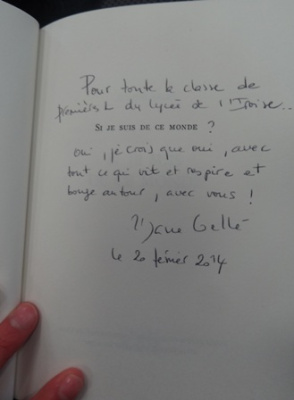 Pour toute la classe de
premières L du lycée de l'Iroise..
SI JE SUIS DE CE MONDE ?
oui, je crois que oui, avec
tout ce qui vit et respire et
bouge autour, avec vous !
le 20 février 2014